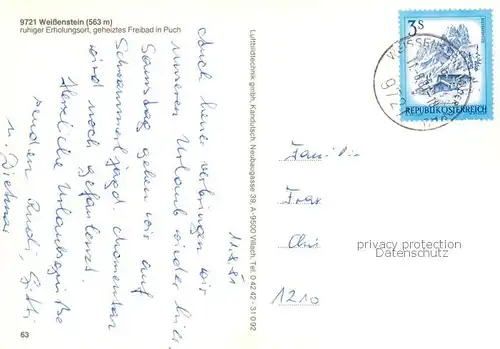 9721 Weißenstein (563 m)
ruhiger Erholungsort, geheiztes Freibad in Puch
11.8.81
Auch heuer verbringen wir
unseren Urlaub wieder hier.
Samstag gehen wir auf
Schwammerljagd. Momentan
wird noch gefaulenzt.
Herzliche Urlaubsgrüße
senden Rudi, Sitti
u. Dietmar
63
Luftbildtechnik gmbh, Kandutsch, Neubaugasse 38, A-9500 Villach, Tel. 0 42 42 - 31 0 92
3 S
REPUBLIK ÖSTERREICH
WEISSEN
972
Familie
1210
privacy protection
Datenschutz